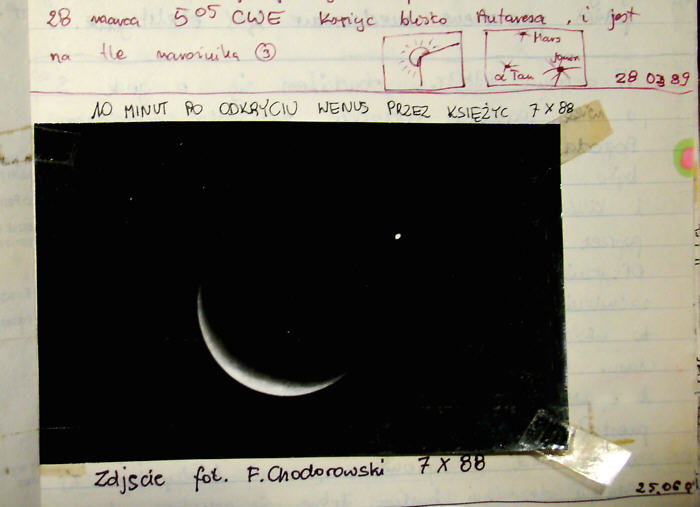 28 marca 5⁰⁵ CWE Księżyc blisko Antaresa, i jest
na tle warośnika ③
Mars
α Tau
28 03 89
10 MINUT PO ODKRYCIU WENUS PRZEZ KSIĘŻYC 7 X 88
Zdjęcie fot. F. Chodorowski 7 X 88